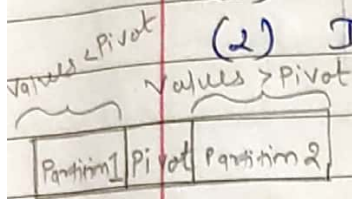 values < Pivot
(2)
Values > Pivot
Partition 1 Pivot Partition 2